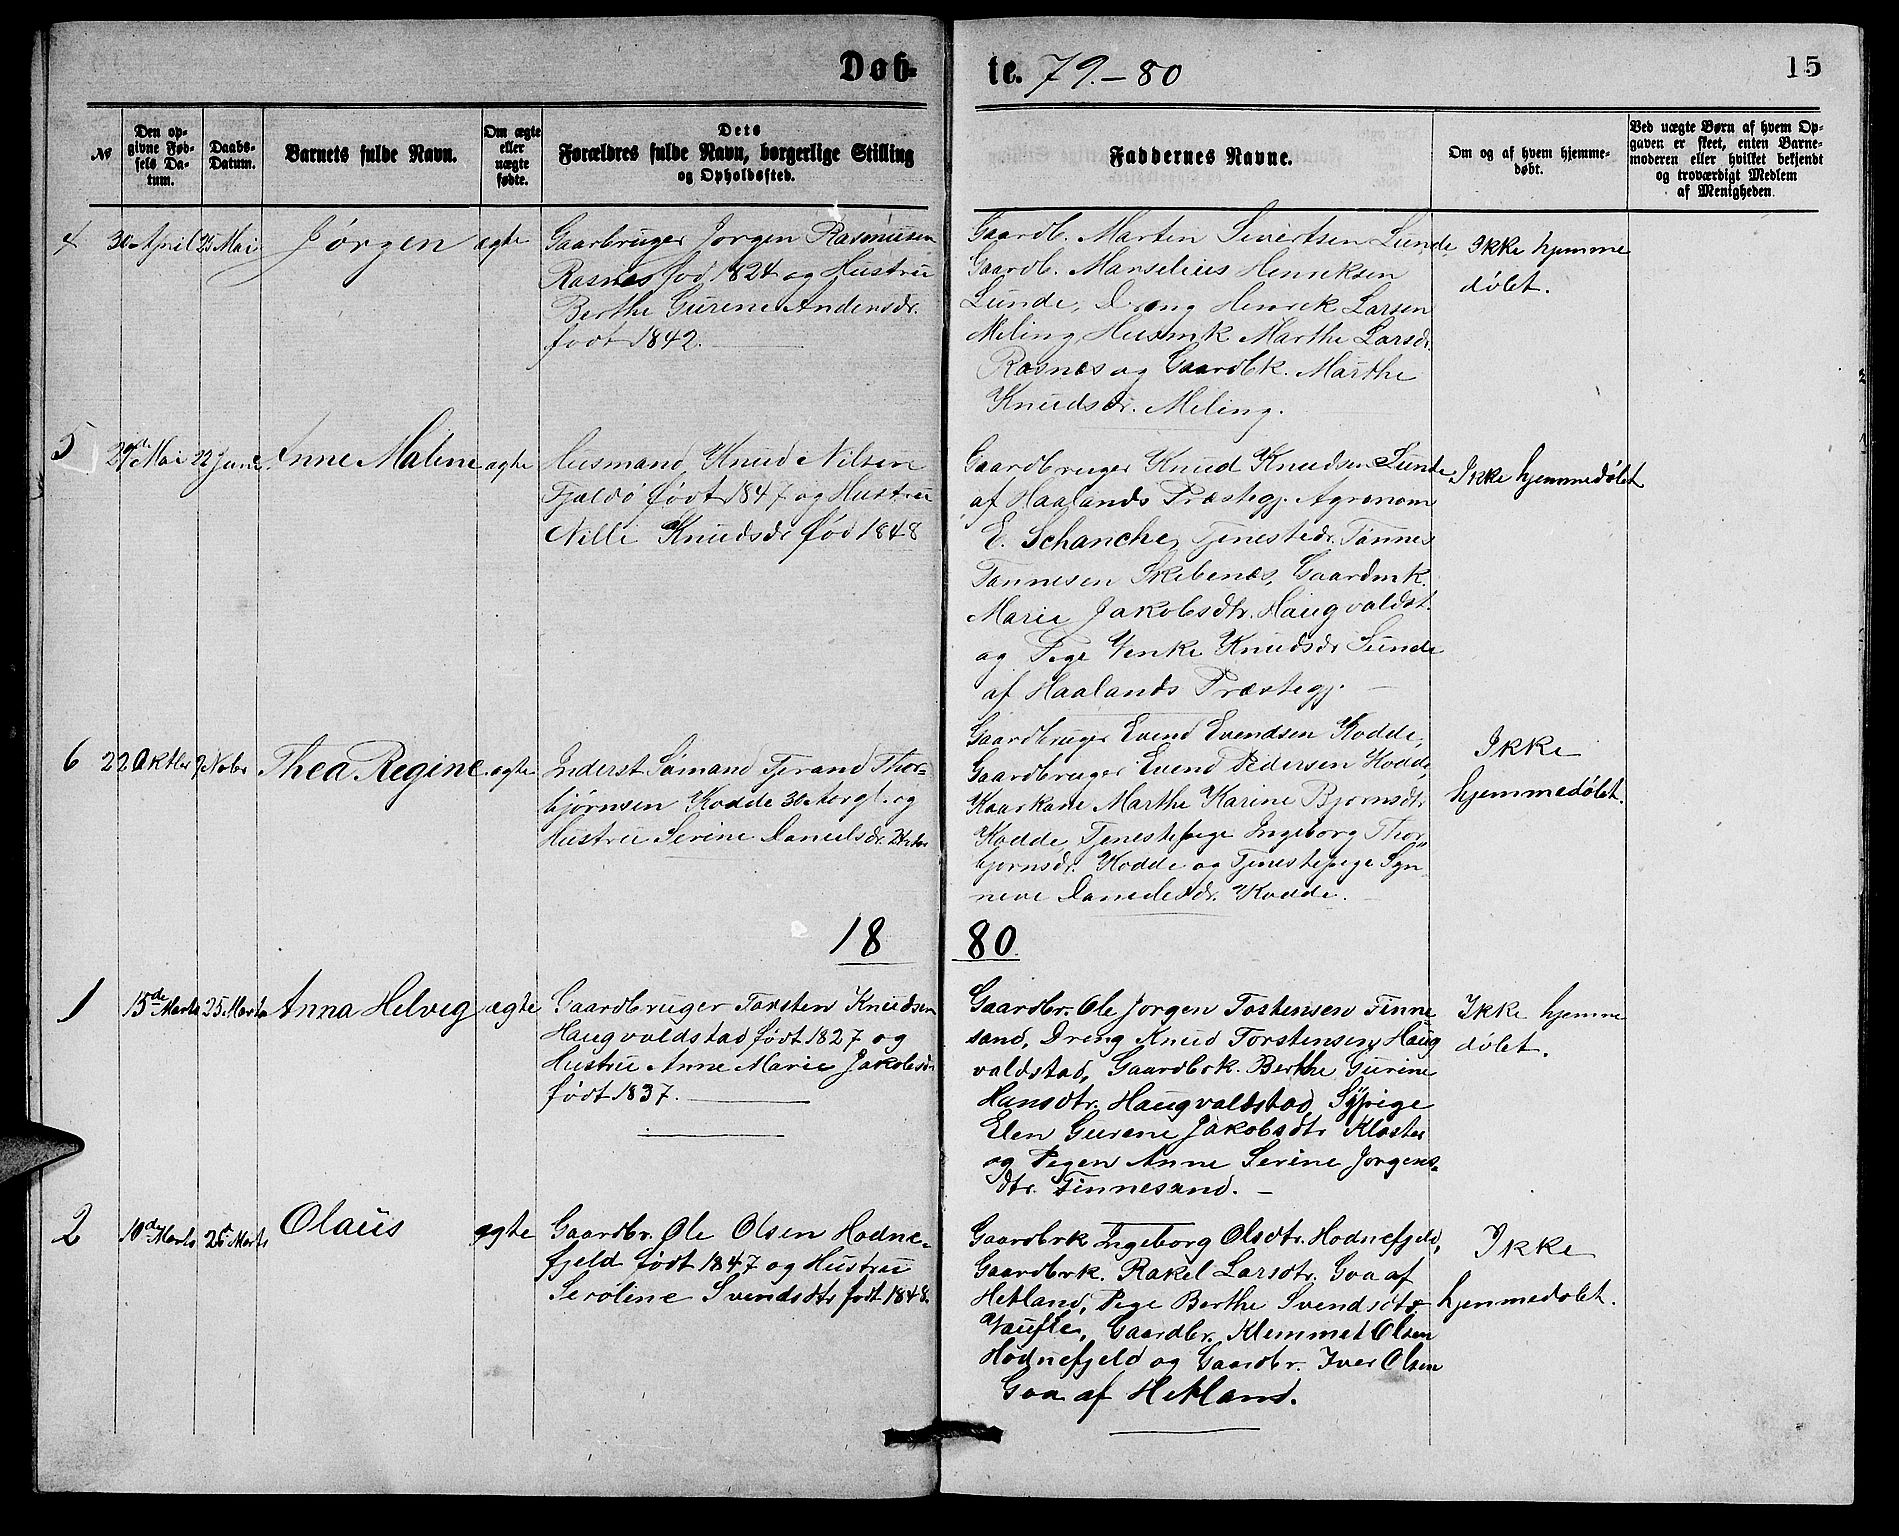 Døb- te. 79.-80
15
№
Den opgivne Fødsels Datum.
Daabs-Datum.
Barnets fulde Navn.
Om ægte eller uægte fødte.
Dets Forældres fulde Navn, borgerlige Stilling og Opholdssted.
Faddernes Navne.
Om og af hvem hjemmedøbt.
Ved uægte Børn af hvem Opgaven er skeet, enten Barnemoderen eller hvilket bekjendt og troværdigt Medlem af Menigheden.
4 30 April 25 Mai Jórgen ægte
Gaarbruger Jorgen Rasmusen
Rasnes fod 1824 og Hustru
Berthe Gurene Andersdr.
født 1842.
Gaardb. Marten Sivertsen Lunde
Gaardb. Marselius Henriksen
Lunde, Dreng Henrek Larsen
Meling, Husmk Marthe Larsdr.
Rasnes og Gaardbk. Marthe
Knudsdr. Meling.
Ikke hjemme
dóbt.
5 Mai 22 Juni Anne Maline ægte
Husmand, Knud Nilsen
Fjøldø født 1847 og Hustru
Nilli Knudsdr fód 1848
Gaardbruger Knud Knudsen Sunde
af Haalands Præstegj. Agronom
E. Schanche, Tjenestedr. Tønnes
Tønnesen Skebenæs, Gaardmk.
Marie Jakobsdtr. Haugvaldst.
og Pige Venke Knudsdr Sunde
af Haalands Præstegj.
Ikke hjemmedóbt
6 22 Oktbr 9 Novbr Thea Regine ægte
Inderst Sømand Tjerand Thor-
bjørnsen Hodde 30 og
Hustru Serine Danielsdr
Gaardbruger Evend Evendsen Hodde,
Gaardbruger Evend Pedersen Hodde,
Kaarkone Marthe Karine Bjornsdtr
Hodde, Tjenestepige Ingeborg Thor-
bjornsdr. Hodde og Tjenestepige Syn-
neve Danielsdr. Hodde.
Ikke
hjemmedóbt.
18 80.
1 15de Marts 25 Marts Anna Helvig ægte
Gaardbruger Torsten Knudsen
Haugvaldstad født 1827 og
Hustru Anne Marie Jakobsdr
født 1837.
Gaardbr. Ole Jorgen Tostensen Finne
sand, Dreng Knud Torstensen, Haug
valdstad, Gaardbrk. Berthe Gurine
Hansdtr. Haugvaldstad, Sypige
Elen Gurene Jakobsdtr Kloster
og Pegen Anne Serine Jorgens-
dtr. Finnesand.
Ikke hjemme
dóbt.
2 10de Marts 25 Marts Olaus ægte
Gaardbr. Ole Olsen Hodne-
fjeld født 1847 og Hustru
Seróline Svendsdtr født 1848.
Gaardbrk Ingeborg Olsdtr. Hodnefjeld,
Gaardbrk. Rakel Larsdtr. Goa af
Hetland, Pige Berthe Svendsdtr
Gaardbr. Klemmet Olsen
Hodnefjeld og Gaardbr. Iver Olsen
Goa af Hetland.
Ikke
hjemmedobt.